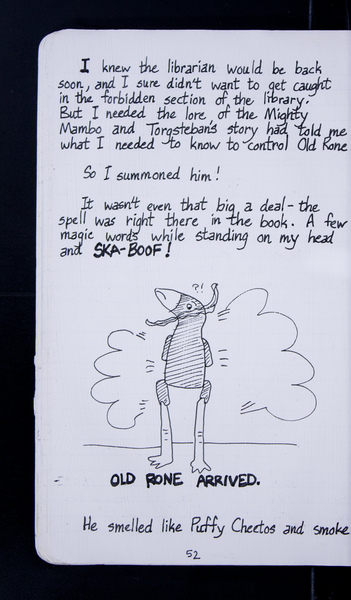 I knew the librarian would be back
soon, and I sure didn't want to get caught
in the forbidden section of the library.
But I needed the lore of the Mighty
Mambo and Torgsteban's story had told me
what I needed to know to control Old Rone
So I summoned him!
It wasn't even that big a deal - the
spell was right there in the book. A few
magic words while standing on my head
and SKA-BOOF!
?!
OLD RONE ARRIVED.
He smelled like Puffy Cheetos and smoke
52